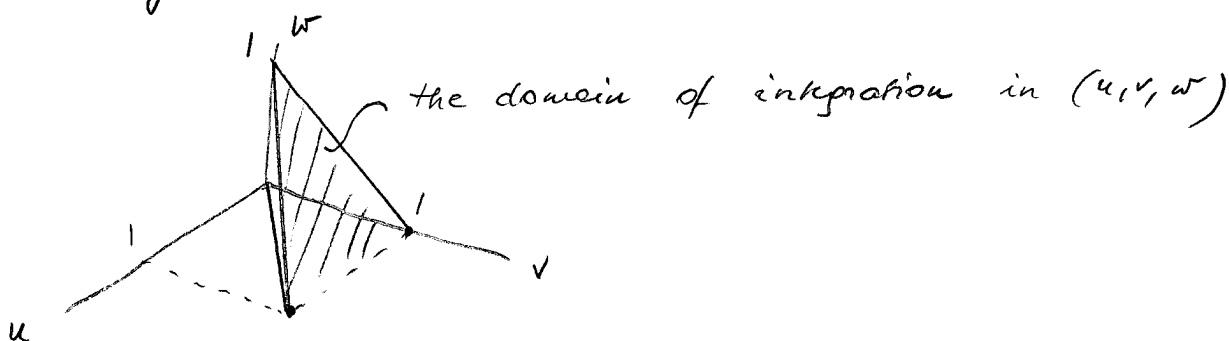 1 w
the domain of integration in (u,v,w)
1
1
v
u